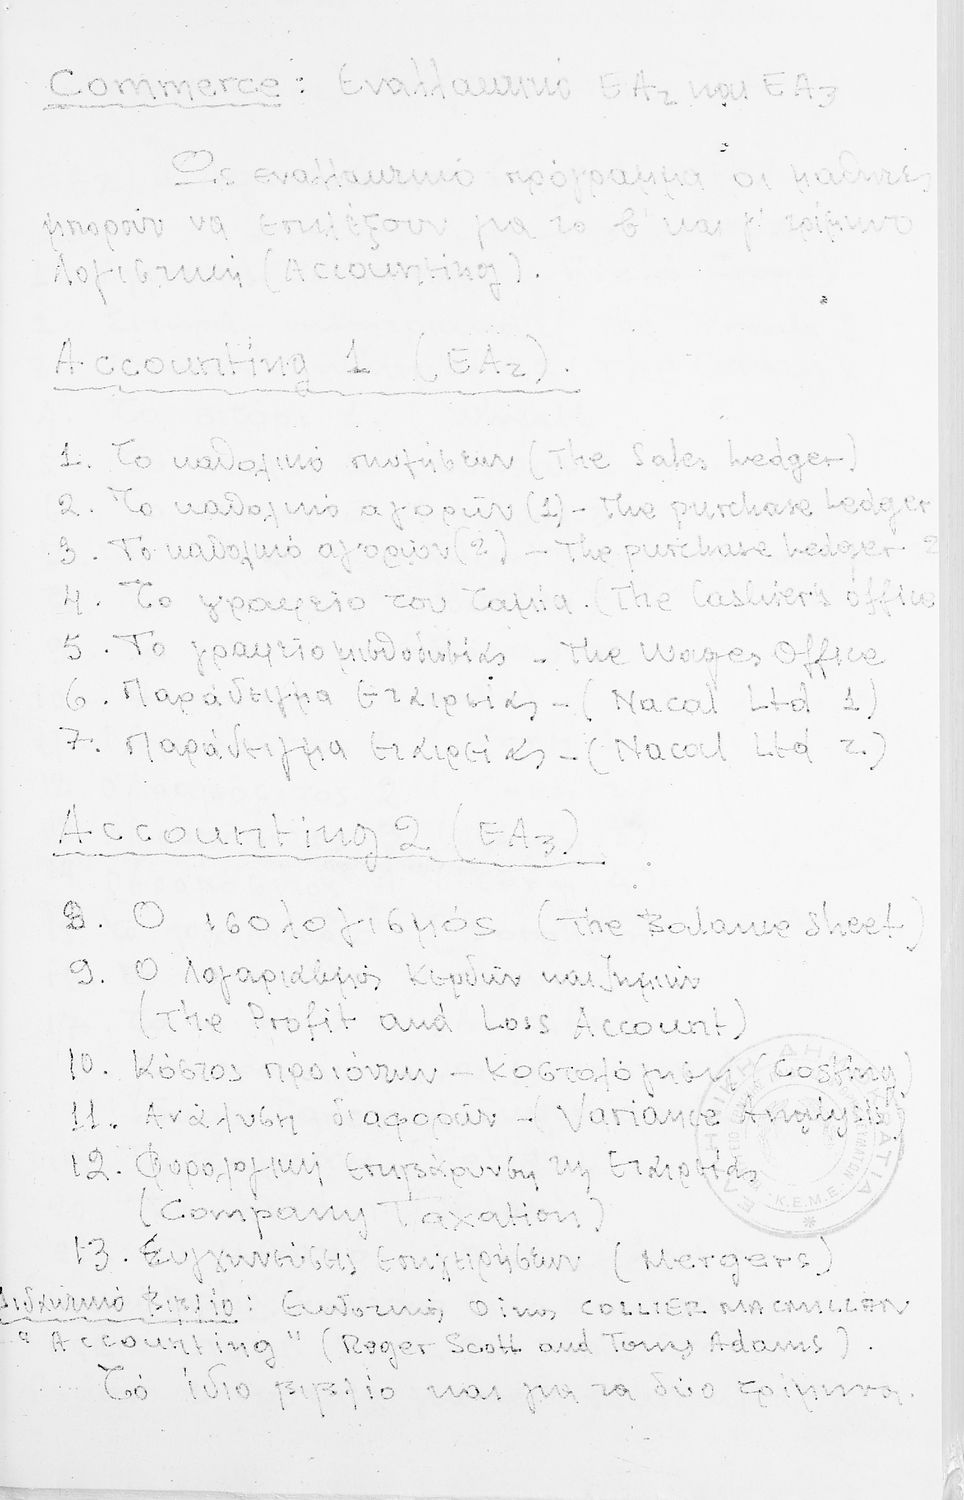 Commerce: Εναλλακτικό EA2 και EA3
Ως εναλλακτικό πρόγραμμα οι μαθητές
μπορούν να επιλέξουν για το β' και γ' τρίμηνο
Λογιστική (Accounting).
Accounting 1 (EA2).
1. Το καθολικό πωλήσεων (The Sales Ledger)
2. Το καθολικό αγορών (1) - The purchase Ledger
3. Το καθολικό αγορών (2) - The purchase Ledger 2
4. Το γραφείο του Ταμία. (The Cashier's office
5. Το γραφείο μισθοδοσίας - The Wages Office
6. Παράδειγμα Εταιρείας - (Nacal Ltd 1)
7. Παράδειγμα Εταιρείας - (Nacal Ltd 2.)
Accounting 2 (EA3)
8. Ο ισολογισμός (The Balance Sheet)
9. Ο Λογαριασμός Κερδών και Ζημιών
(The Profit and Loss Account)
10. Κόστος προϊόντων - Κοστολόγηση (Costing)
11. Ανάλυση διαφορών - (Variance Analysis).
12. Φορολογική επιβάρυνση της Εταιρείας
(Company Taxation)
13. Συγχωνεύσεις επιχειρήσεων (Mergers)
Διδακτικό βιβλίο: Εκδοτικός Οίκος COLLIER MACMILLAN
"Accounting" (Roger Scott and Tony Adams).
Το ίδιο βιβλίο και για τα δύο τρίμηνα.
ΕΛΛΗΝΙΚΗ ΔΗΜΟΚΡΑΤΙΑ
Κ.Ε.Μ.Ε.